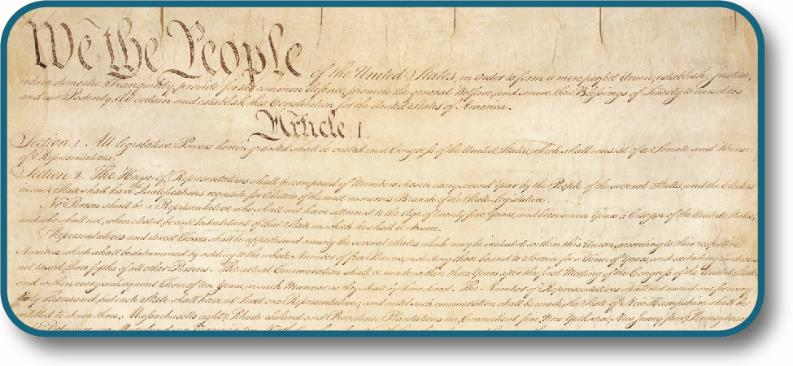 We the People of the United States, in Order to form a more perfect Union, establish Justice,
insure domestic Tranquility, provide for the common defence, promote the general Welfare, and secure the Blessings of Liberty to ourselves
and our Posterity, do ordain and establish this Constitution for the United States of America.
Article I.
Section 1. All legislative Powers herein granted shall be vested in a Congress of the United States, which shall consist of a Senate and House
of Representatives.
Section 2. The House of Representatives shall be composed of Members chosen every second Year by the People of the several States, and the Electors
in each State shall have the Qualifications requisite for Electors of the most numerous Branch of the State Legislature.
No Person shall be a Representative who shall not have attained to the Age of twenty five Years, and been seven Years a Citizen of the United States,
and who shall not, when elected, be an Inhabitant of that State in which he shall be chosen.
Representatives and direct Taxes shall be apportioned among the several States which may be included within this Union, according to their respective
Numbers, which shall be determined by adding to the whole Number of free Persons, including those bound to Service for a Term of Years, and excluding Indians
not taxed, three fifths of all other Persons. The actual Enumeration shall be made within three Years after the first Meeting of the Congress of the United States,
and within every subsequent Term of ten Years, in such Manner as they shall by Law direct. The Number of Representatives shall not exceed one for every
thirty Thousand, but each State shall have at Least one Representative; and until such enumeration shall be made, the State of New Hampshire shall be
entitled to chuse three, Massachusetts eight, Rhode Island and Providence Plantations one, Connecticut five, New York six, New Jersey four, Pennsylvania